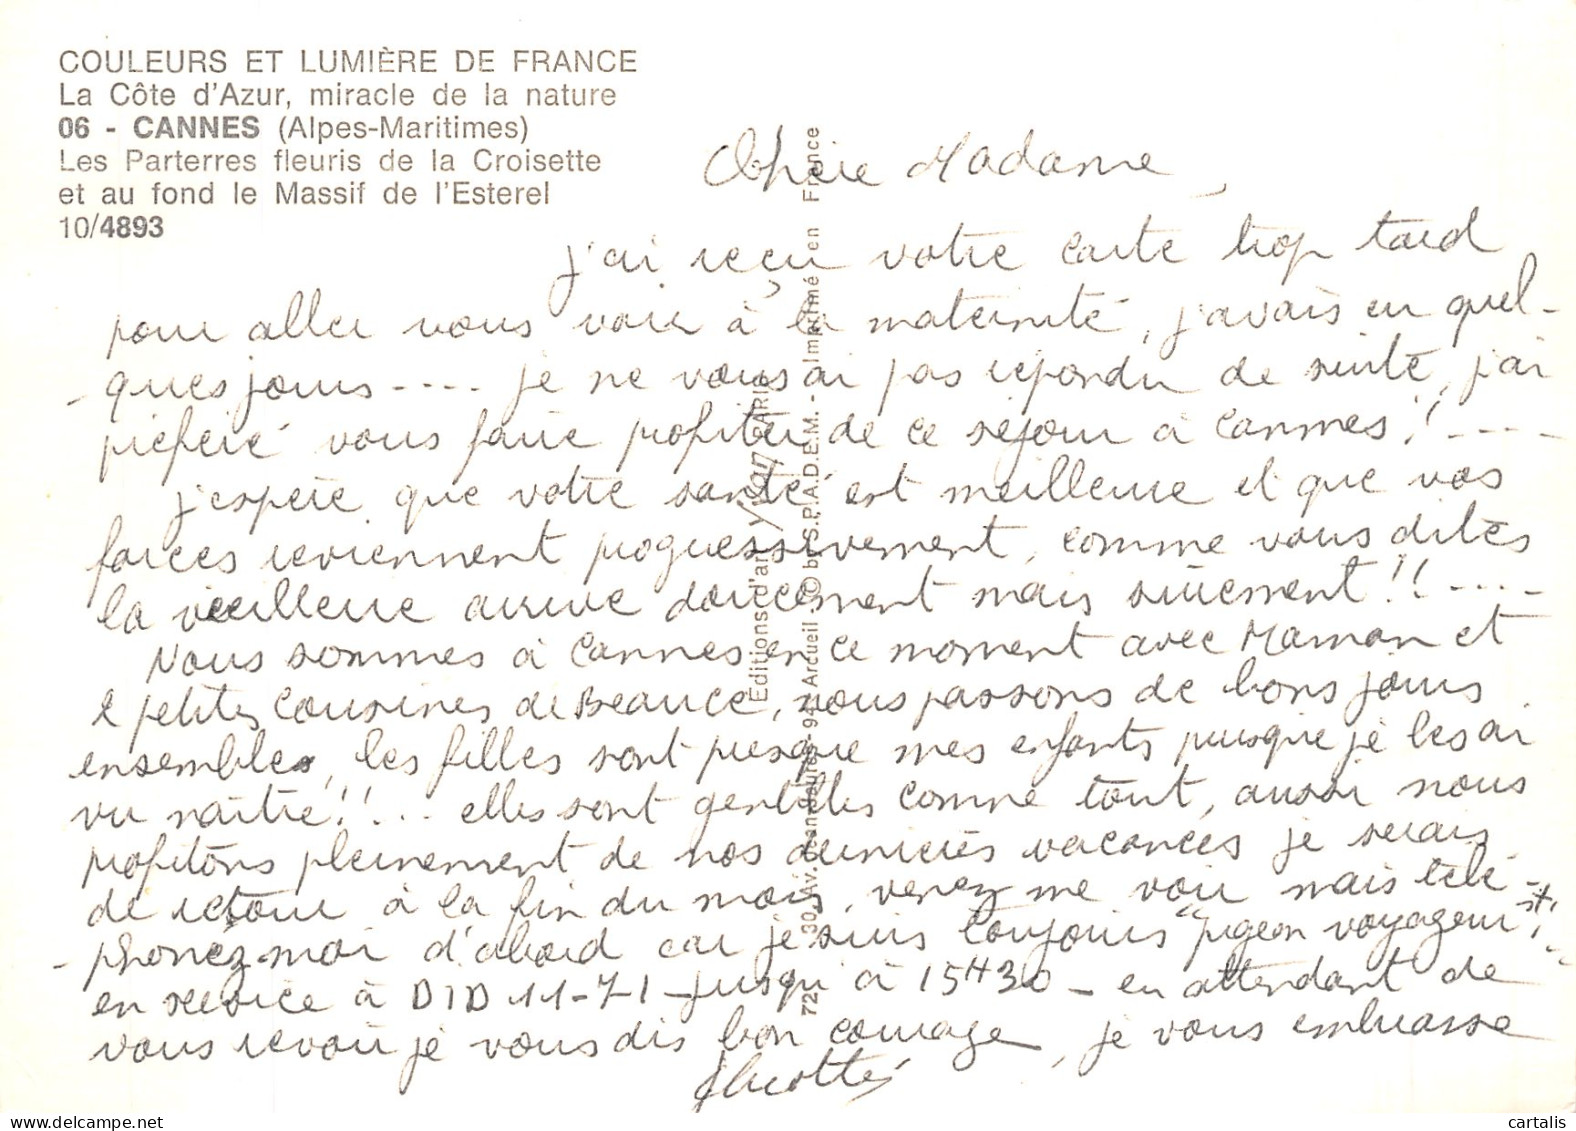 COULEURS ET LUMIÈRE DE FRANCE
La Côte d'Azur, miracle de la nature
06 - CANNES (Alpes-Maritimes)
Les Parterres fleuris de la Croisette
et au fond le Massif de l'Esterel
10/4893
Chère Madame,
j'ai reçu votre carte trop tard
pour aller vous voir à la maternité, j'avais eu quel-
-ques jours .... je ne vous ai pas répondu de suite, j'ai
préféré vous faire profiter de ce séjour à Cannes! ....
j'espère que votre santé est meilleure et que vos
forces reviennent progressivement, comme vous dites
la arrive doucement mais sûrement!! ....
Nous sommes à Cannes en ce moment avec Maman et
2 petites cousines de Beauce, nous passons de bons jours
ensembles, les filles sont presque mes enfants puisque je les ai
vu naître!! ... elles sont gentilles comme tout, aussi nous
profitons pleinement de nos dernières vacances je serais
de retour à la fin du mois, venez me voir mais télé-
-phonez-moi d'abord car je suis toujours "pigeon voyageur"!
en service à DID 11-71 - jusqu'à 15H30 - en attendant de
vous revoir je vous dis bon courage, je vous embrasse
Editions d'art Yvon PARIS
72-30, Av. - 94 - Arcueil © by S.P.A.D.E.M. - Imprimé en France
cartalis